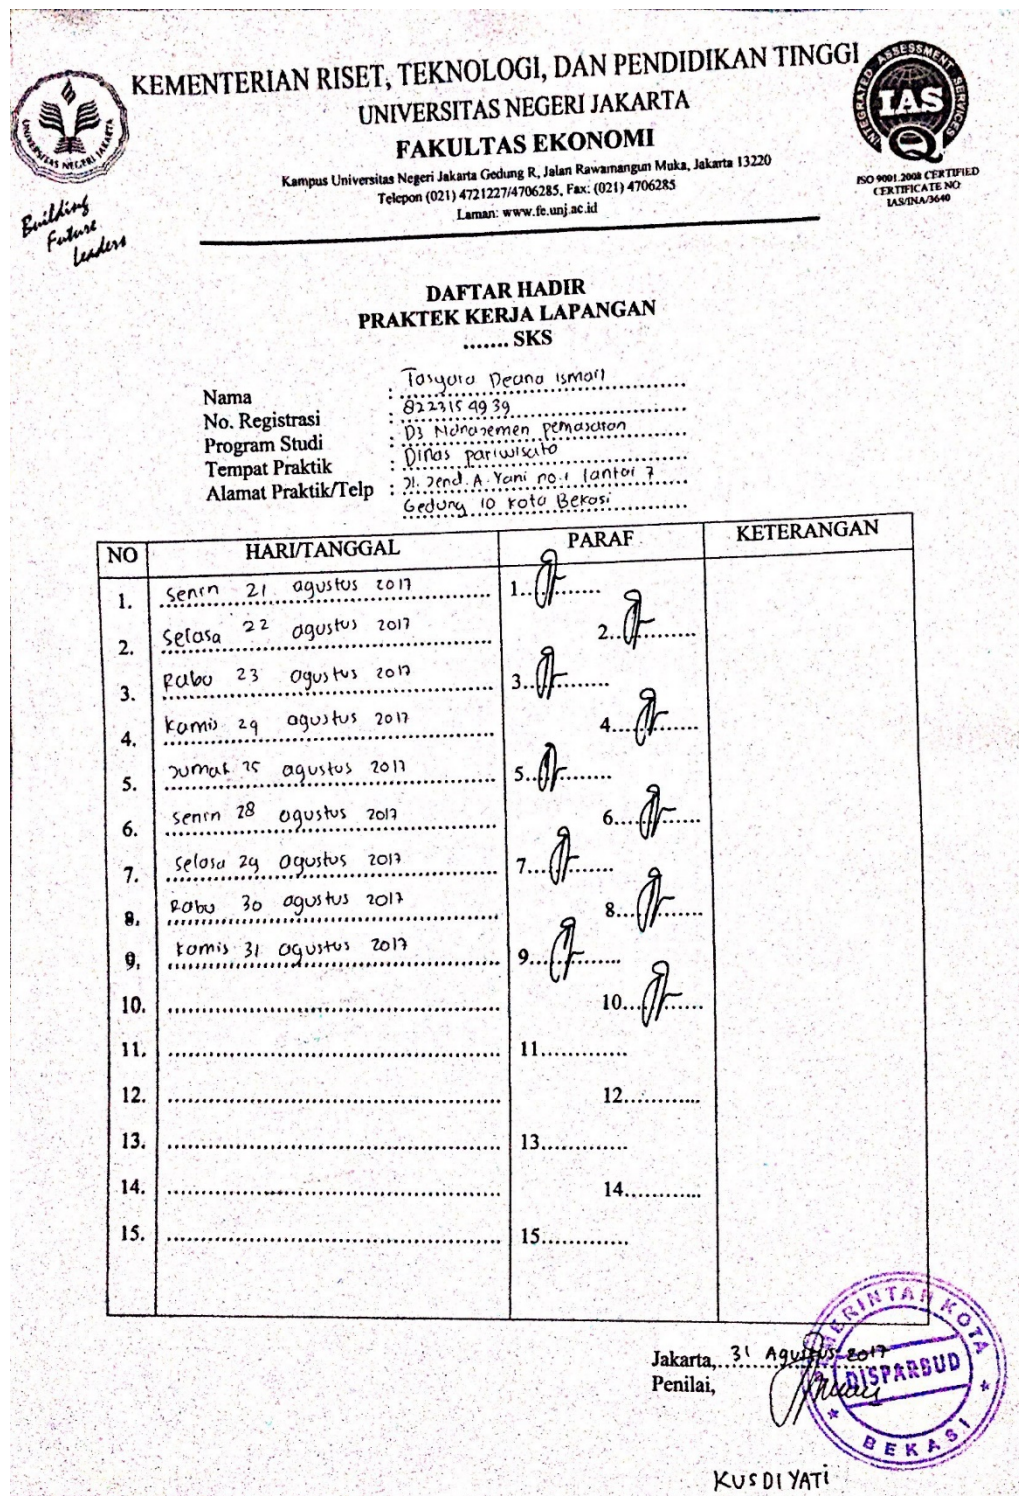 KEMENTERIAN RISET, TEKNOLOGI, DAN PENDIDIKAN TINGGI
UNIVERSITAS NEGERI JAKARTA
FAKULTAS EKONOMI
Kampus Universitas Negeri Jakarta Gedung R, Jalan Rawamangun Muka, Jakarta 13220
Telepon (021) 4721227/4706285, Fax: (021) 4706285
Laman: www.fe.unj.ac.id
UNIVERSITAS NEGERI JAKARTA
Building
Future
Leaders
INTEGRATED ASSESSMENT SERVICES
IAS
ISO 9001:2008 CERTIFIED
CERTIFICATE NO:
IAS/INA/3640
DAFTAR HADIR
PRAKTEK KERJA LAPANGAN
....... SKS
Nama : Tasyara Deana Ismail
No. Registrasi : 8223154939
Program Studi : D3 Manajemen pemasaran
Tempat Praktik : Dinas pariwisata
Alamat Praktik/Telp : Jl. Jend. A. Yani no.1 lantai 7
Gedung 10 Kota Bekasi
NO HARI/TANGGAL PARAF KETERANGAN
1. Senin 21 agustus 2017 1.
2. Selasa 22 agustus 2017 2.
3. Rabu 23 agustus 2017 3.
4. Kamis 24 agustus 2017 4.
5. Jumat 25 agustus 2017 5.
6. Senin 28 agustus 2017 6.
7. Selasa 29 agustus 2017 7.
8. Rabu 30 agustus 2017 8.
9. Kamis 31 agustus 2017 9.
10. 10.
11. 11.
12. 12.
13. 13.
14. 14.
15. 15.
Jakarta, 31 Agustus 2017
Penilai,
PEMERINTAH KOTA
DISPARBUD
BEKASI
KUSDIYATI